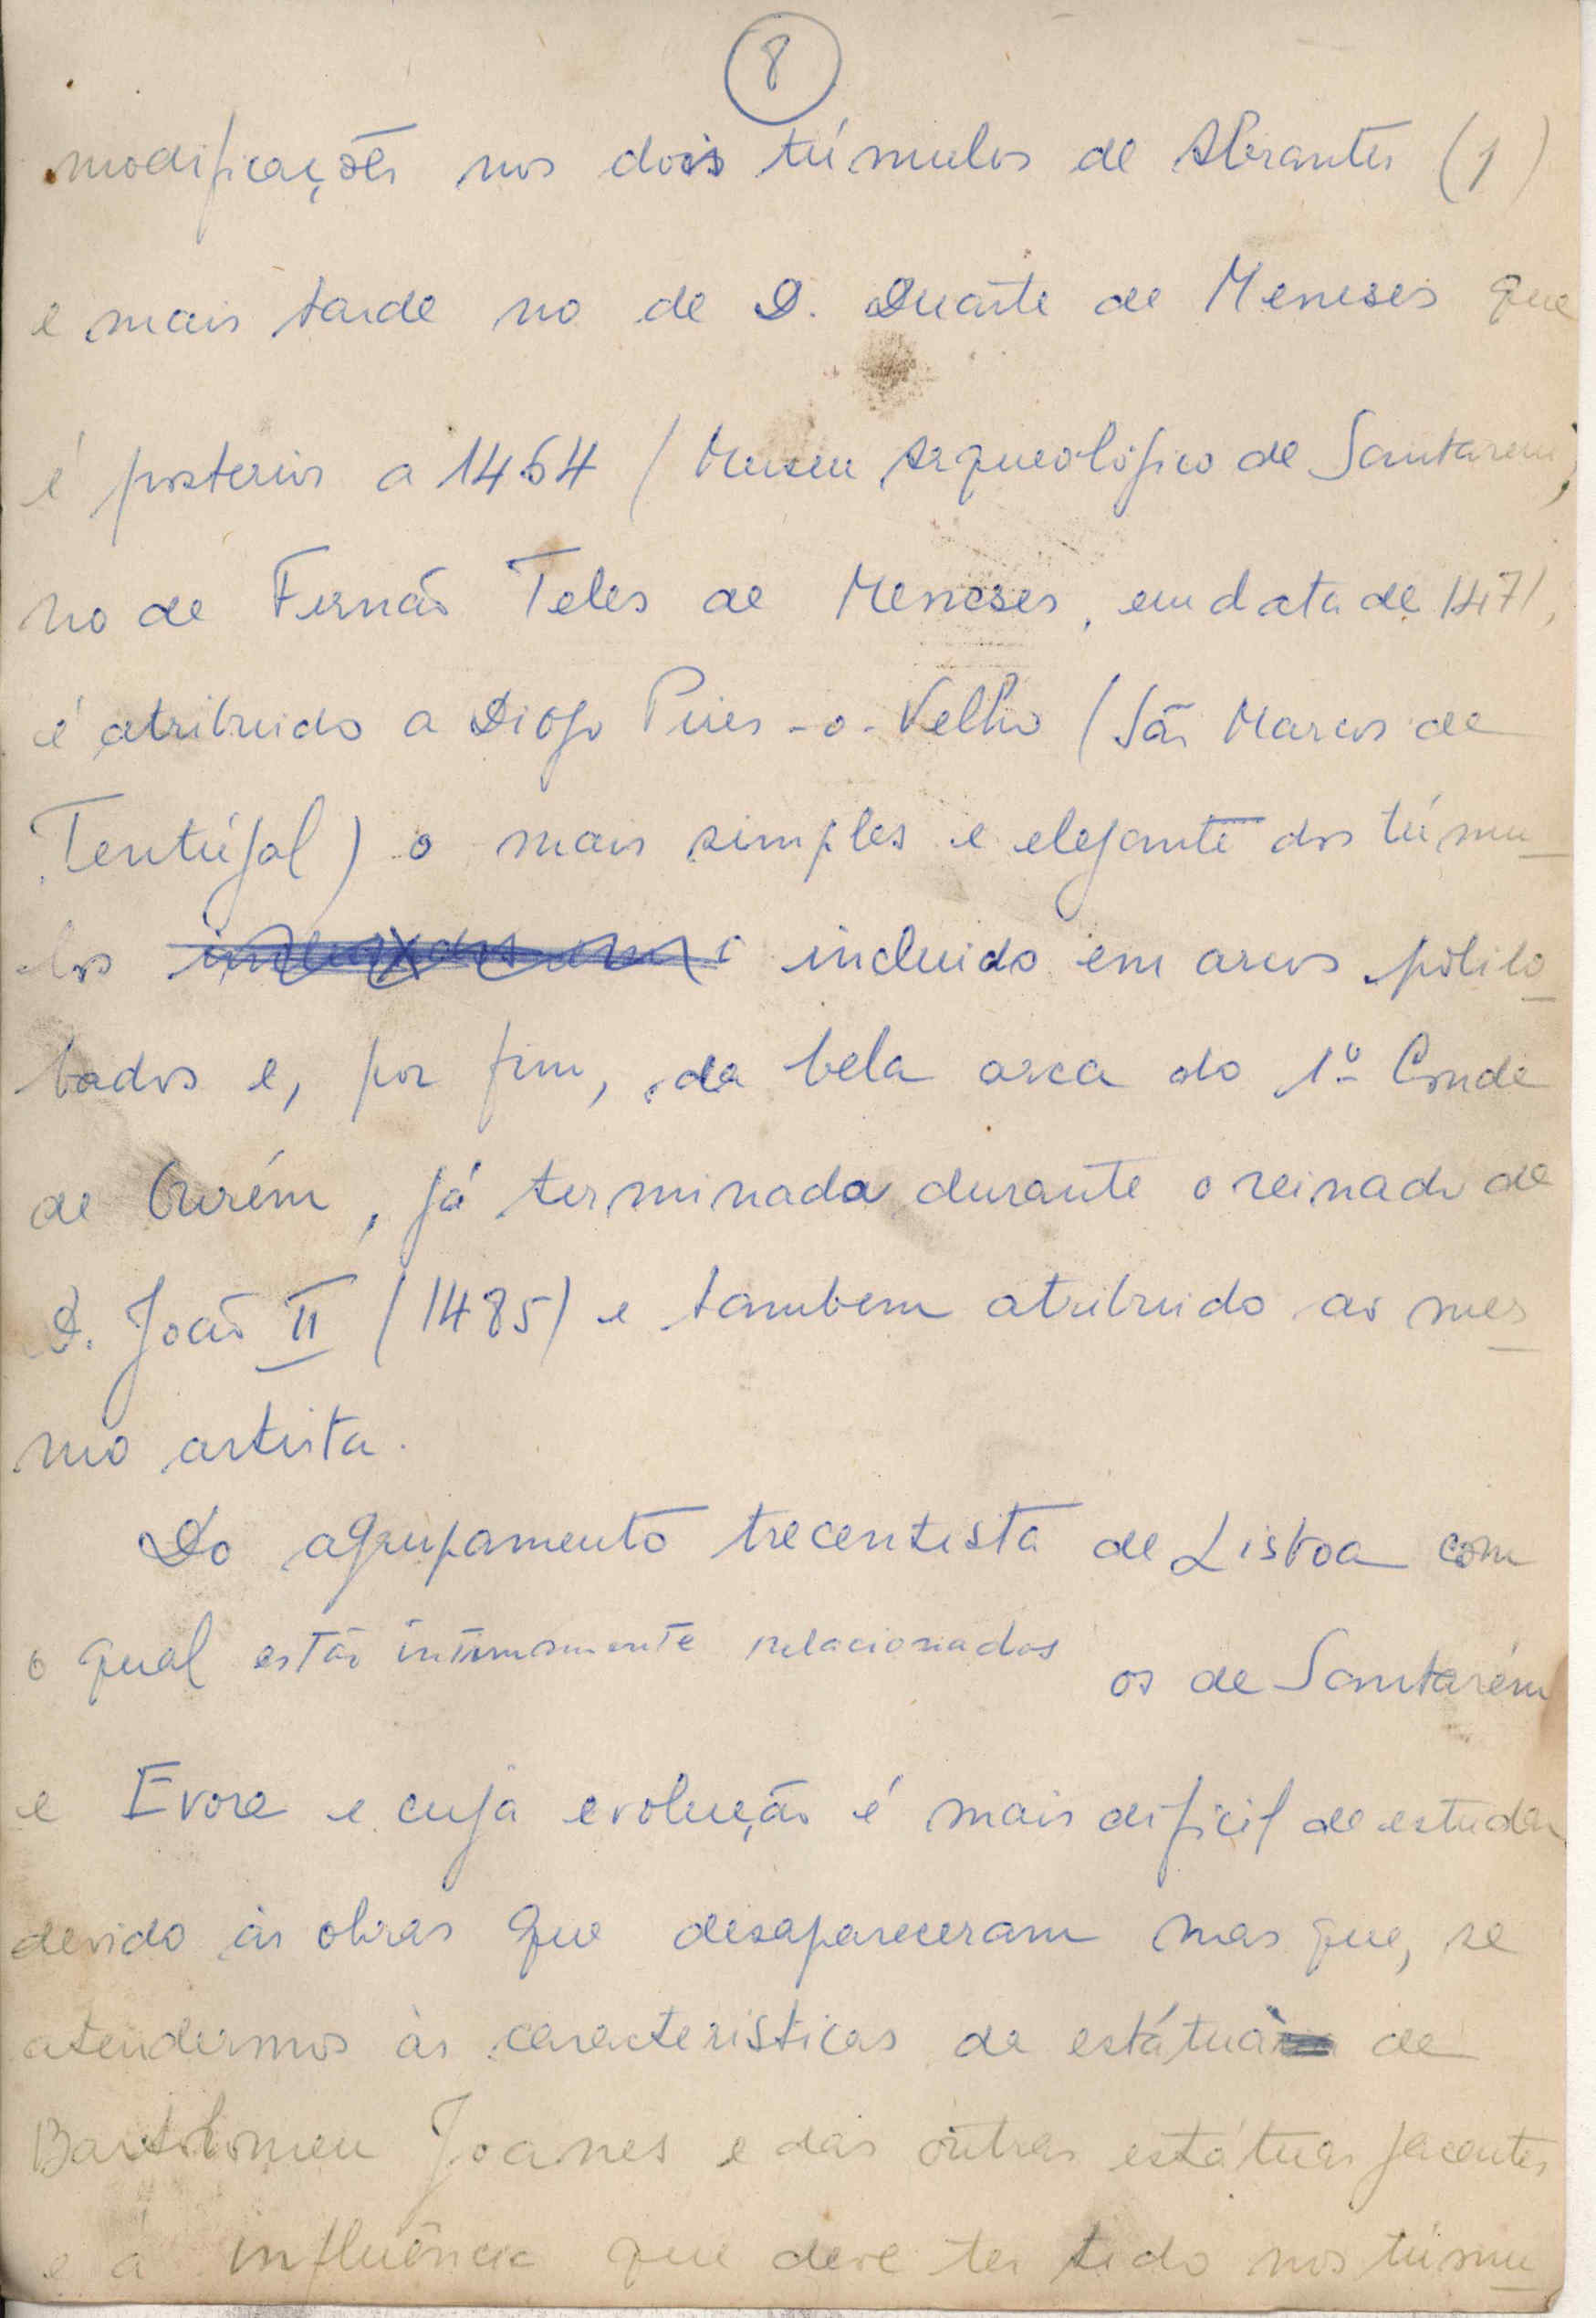 8
modificações nos dois túmulos de Abrantes (1)
e mais tarde no de D. Duarte de Meneses que
é posterior a 1464 (Museu Arqueológico de Santarem;
no de Fernão Teles de Meneses, em data de 1471,
é atribuido a Diogo Pires-o-Velho (São Marcos de
Tentúgal) o mais simples e elegante dos túmu
los incluido em arcos polilo
bados e, por fim, da bela arca do 1º Conde
de Ourém, já terminada durante o reinado de
D. João II (1485) e tambem atribuido ao mes
mo artista.
Do agrupamento trecentista de Lisboa com
o qual estão intimamente relacionados os de Santarém
e Evora e cuja evolução é mais dificil de estudar
devido às obras que desapareceram mas que, se
atendermos às caracteristicas da estátua de
Bartolomeu Joanes e das outras estátuas jacentes
e à influência que deve ter tido nos túmu